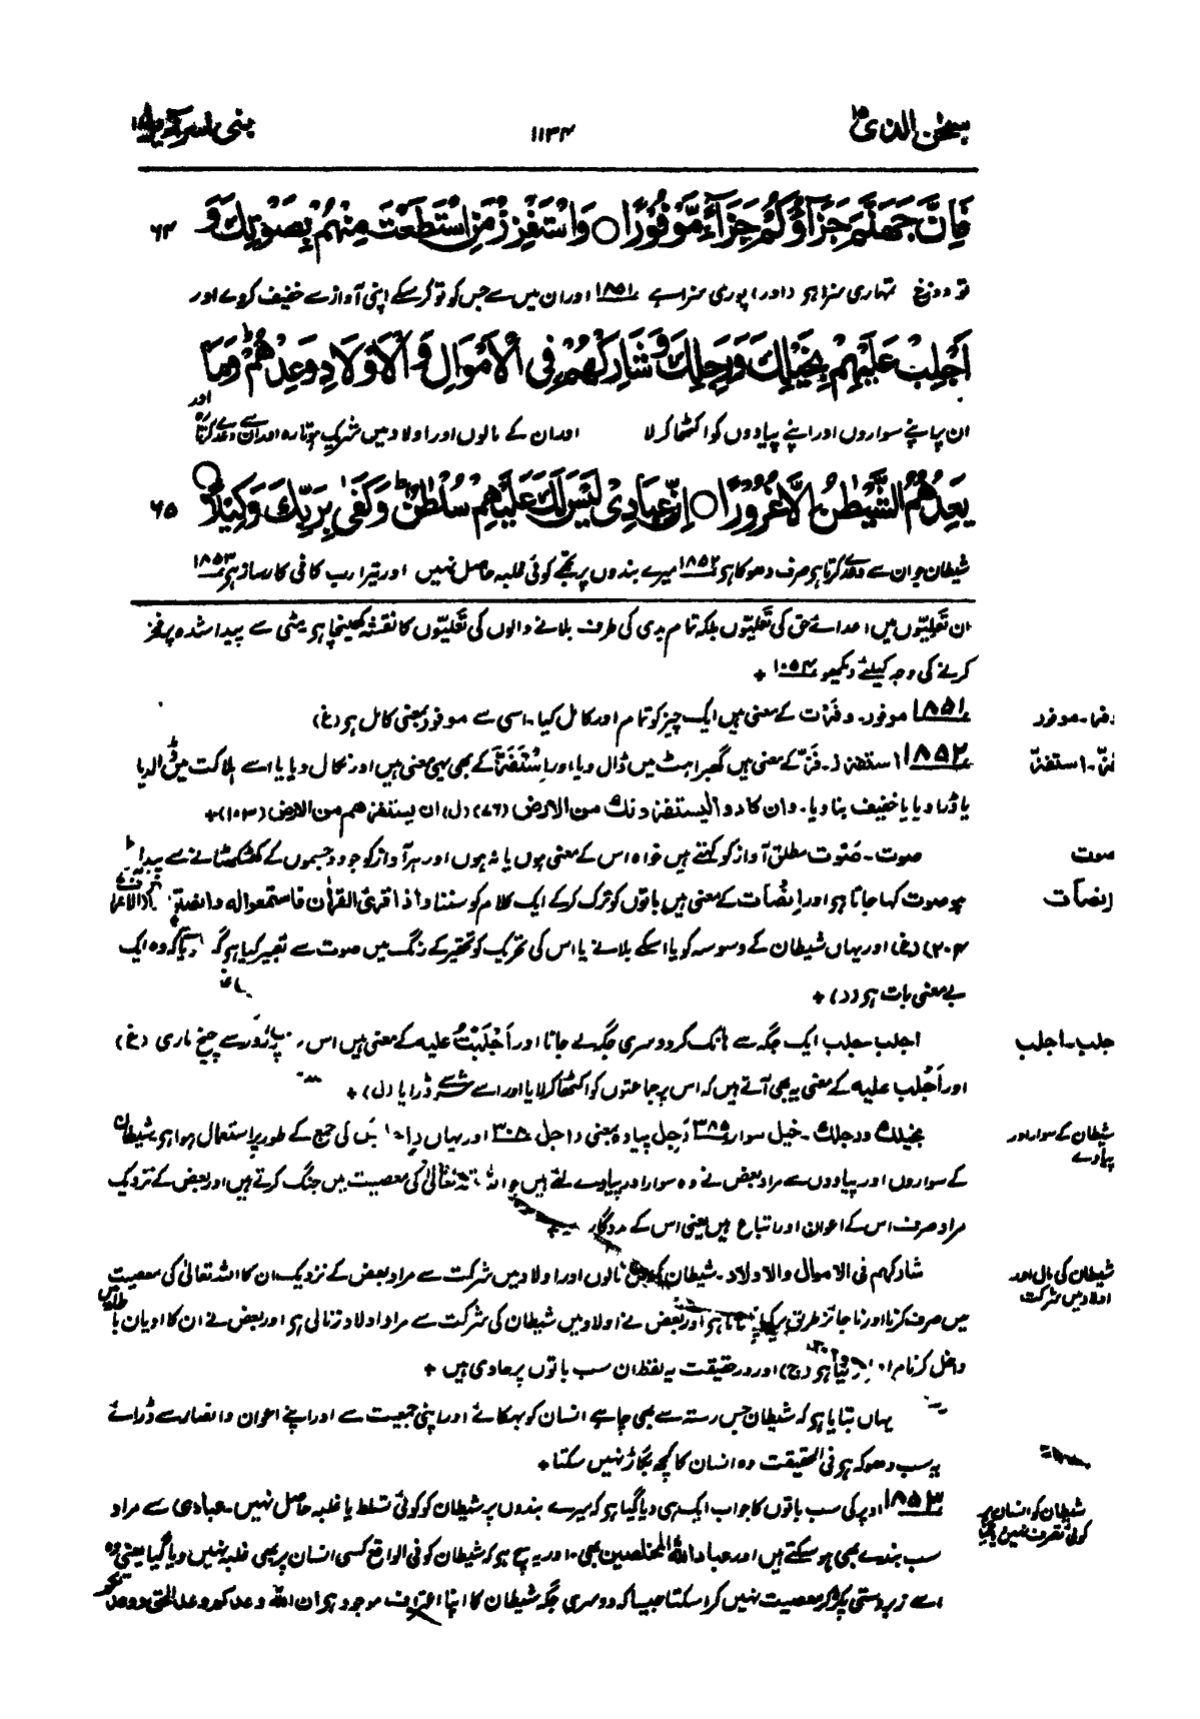 سبحٰن الذی ۱۵
۱۱۳۴
بنی اسرآءیل ۱۷
فَاِنَّ جَهَنَّمَ جَزَآؤُكُمْ جَزَآءً مَّوْفُوْرًا ○ وَاسْتَفْزِزْ مَنِ اسْتَطَعْتَ مِنْهُمْ بِصَوْتِكَ وَ
۶۴
تو دوزخ تمہاری سزا ہو (اور) پوری سزا ہے ۱۸۵۱ اور ان میں سے جس کو تو کرسکے اپنی آواز سے خفیف کردے اور
اَجْلِبْ عَلَيْهِمْ بِخَيْلِكَ وَرَجِلِكَ وَشَارِكْهُمْ فِى الْاَمْوَالِ وَالْاَوْلَادِ وَعِدْهُمْ ؕ وَمَا
ان پر اپنے سواروں اور اپنے پیادوں کو اکٹھا کر لا اور ان کے مالوں اور اولاد میں شریک ہوتا رہ اور ان سے وعدے کرتا رہ اور
يَعِدُهُمُ الشَّيْطٰنُ اِلَّا غُرُوْرًا ○ اِنَّ عِبَادِىْ لَيْسَ لَكَ عَلَيْهِمْ سُلْطٰنٌ ؕ وَكَفٰى بِرَبِّكَ وَكِيْلًا ○
۶۵
شیطان جو ان سے وعدے کرتا ہو صرف دھوکا ہو ۱۸۵۲ میرے بندوں پر تجھے کوئی غلبہ حاصل نہیں اور تیرا رب کافی کارساز ہو ۱۸۵۳
ان تعلیّوں میں اعدائے حق کی تعلیّوں بلکہ تمام بدی کی طرف بلانے والوں کی تعلیّوں کا نقشہ کھینچا ہو مٹی سے پیدا شدہ پر فخر
کرنے کی وجہ کیلئے دیکھو ۱۰۵۴ +
۱۸۵۱ موفور۔ وَفَرْت کے معنی ہیں ایک چیز کو تمام اور کامل کیا۔ اسی سے موفور بمعنی کامل ہو (غ)
وفر۔ موفور
۱۸۵۲ استفزز۔ فَزّ کے معنی ہیں گھبراہٹ میں ڈال دیا اور اِسْتَفَزَّ کے بھی یہی معنی ہیں اور نکال دیا یا اسے ہلاکت میں ڈالدیا
فزّ۔ استفزّ
یا ڈرا دیا یا خفیف بنا دیا۔ وان کادوا لیستفزونک من الارض (۷۶) (ل) ان یستفزهم من الارض (۱۰۳) +
صوت۔ صَوْت مطلق آواز کو کہتے ہیں خواہ اس کے معنی ہوں یا نہ ہوں اور ہر آواز کو جو دو جسموں کے کھٹکھٹانے سے پیدا
صوت
ہو صوت کہا جاتا ہو اور اِنْصَات کے معنی ہیں باتوں کو ترک کرکے ایک کلام کو سننا واذا قرئ القراٰن فاستمعوا له وانصتوا
انصات
۲۰۴) (غ) اور یہاں شیطان کے وسوسہ کو یا اسکے بلانے یا اس کی تحریک کو تحقیر کے رنگ میں صوت سے تعبیر کیا ہو گویا کہ وہ ایک
بے معنی بات ہو (ر) +
اجلب۔ جلب ایک جگہ سے ہانک کر دوسری جگہ لے جانا اور اَجْلَبْتُ علیہ کے معنی ہیں اس پر زور سے چیخ ماری (غ)
جلب۔ اجلب
اور اَجْلَب علیہ کے معنی یہ بھی آتے ہیں کہ اس پر جماعتوں کو اکٹھا کر لایا اور اسے شر سے ڈرایا (ل) +
بخیلک ورجلک۔ خیل سوار ۳۸۵ رَجِل پیادہ بمعنی راجل ۳۰۵ اور یہاں کی جمع کے طور پر استعمال ہوا ہو شیطان
شیطان کے سوار اور پیادے
کے سواروں اور پیادوں سے مراد بعض نے وہ سوار اور پیادے لئے ہیں جو اللہ تعالیٰ کی معصیت میں جنگ کرتے ہیں اور بعض کے نزدیک
مراد صرف اس کے اعوان اور اتباع ہیں یعنی اس کے مددگار
شارکہم فی الاموال والاولاد۔ شیطان کی مالوں اور اولاد میں شرکت سے مراد بعض کے نزدیک ان کا اللہ تعالیٰ کی معصیت
شیطان کی مال اور اولاد میں شرکت
میں صرف کرنا اور ناجائز طریق پر کمانا ہو اور بعض نے اولاد میں شیطان کی شرکت سے مراد اولاد زنا لی ہو اور بعض نے ان کا ادیان باطلہ میں
داخل کرنا مراد لیا ہو (ج) اور درحقیقت یہ لفظ ان سب باتوں پر حاوی ہیں +
یہاں بتایا ہو کہ شیطان جس رستہ سے بھی چاہے انسان کو بہکائے اور اپنی جمعیت سے اور اپنے اعوان وانصار سے ڈرائے
یہ سب دھوکہ ہو فی الحقیقت وہ انسان کا کچھ بگاڑ نہیں سکتا +
۱۸۵۳ اوپر کی سب باتوں کا جواب ایک ہی دیا گیا ہو کہ میرے بندوں پر شیطان کو کوئی تسلط یا غلبہ حاصل نہیں۔ عبادی سے مراد
شیطان کو انسان پر کوئی تصرف نہیں دیا گیا
سب بندے بھی ہوسکتے ہیں اور عباد اللہ المخلصین بھی۔ اور یہ سچ ہو کہ شیطان کو فی الواقع کسی انسان پر بھی غلبہ نہیں دیا گیا یعنی وہ
اسے زبردستی پکڑ کر معصیت نہیں کراسکتا جیسا کہ دوسری جگہ شیطان کا اپنا اعتراف موجود ہو ان الله وعدکم وعد الحق ووعدتکم